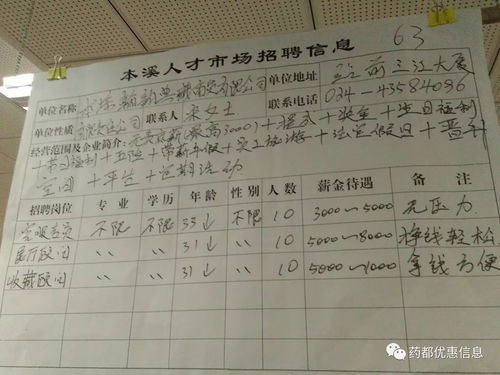 63
本溪人才市场招聘信息
单位名称 本溪 商贸有限公司 单位地址 站前三江大厦
单位性质 有限公司 联系人 宋女士 联系电话 024-43584096
经营范围及企业简介: 无责底薪(最高3000)+提成+奖金+生日福利
+节日福利+五险+带薪年假+员工旅游+法定假日+晋升
空间+ +定期活动
招聘岗位 专业 学历 年龄 性别 人数 薪金待遇 备注
客服专员 不限 不限 35↓ 不限 10 3000~5000 无压力
顾问 〃 〃 31↓ 〃 10 5000~8000 挣钱轻松
收藏顾问 〃 〃 31↓ 〃 10 5000~1000 拿钱方便
药都优惠信息